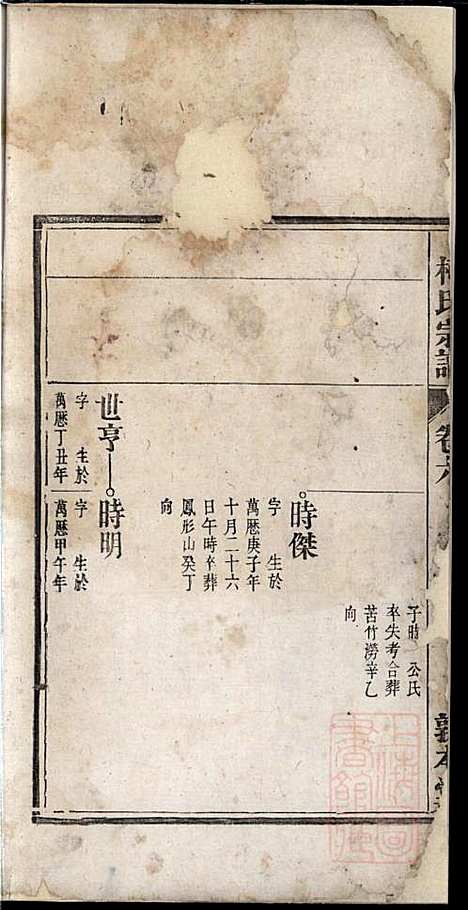 氏宗譜
卷六
敦本堂
子時 公氏
卒失考合葬
苦竹澇辛乙
向
時傑
字 生於
萬歷庚子年
十月二十六
日午時卒葬
鳳形山癸丁
向
世亨 時明
字 生於
萬歷丁丑年
字 生於
萬歷甲午年